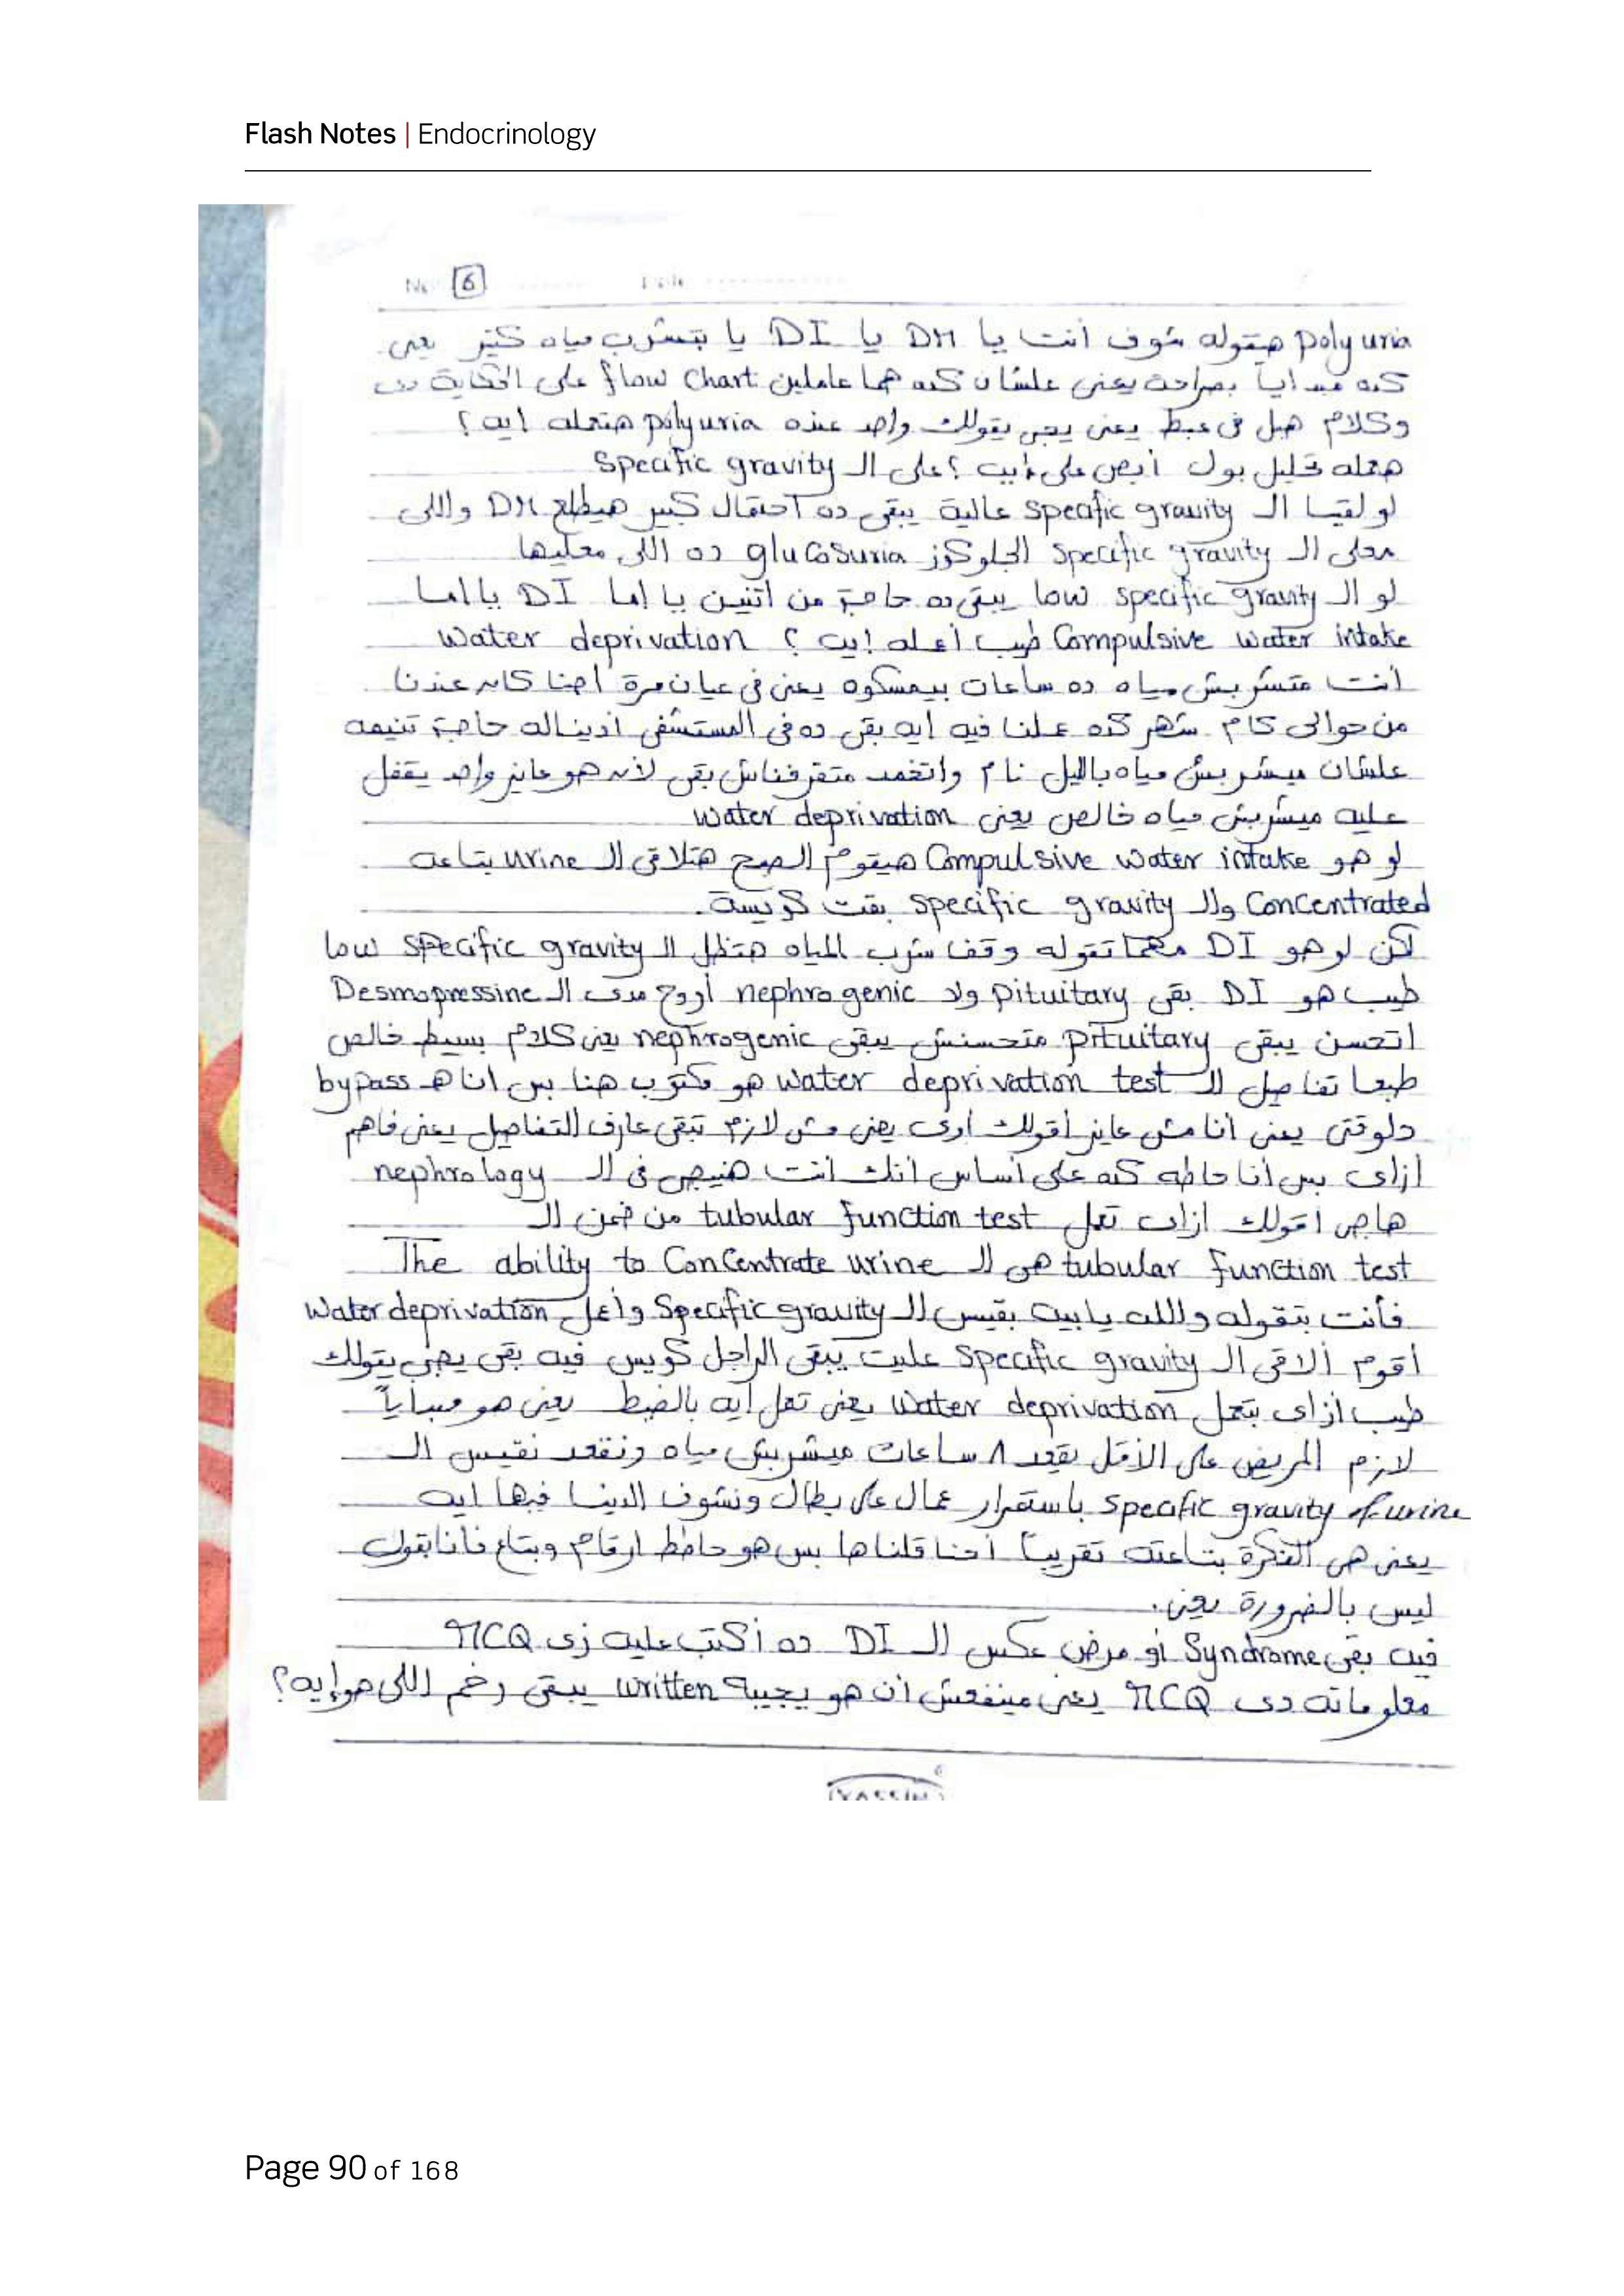 Flash Notes | Endocrinology
No 6
polyuria هتقوله شوف أنت يا DM يا DI يا بتشرب مياه كتير يعنى
كده مبدأياً بصراحة يعنى علشان كده هما عاملين flow chart على الحكاية دى
وكلام هبل فى عبط يعنى يجى يقولك واحد عنده polyuria هتعمله ايه ؟
هعمله تحليل بول أبص على أيه ؟ على الـ Specific gravity
لو لقينا الـ specific gravity عالية يبقى ده احتمال كبير هيطلع DM واللى
معلى الـ specific gravity الجلوكوز glucosuria ده اللى معليها
لو الـ low specific gravity يبقى ده حاجة من اتنين يا إما DI يا إما
Compulsive water intake طيب أعمله إيه ؟ water deprivation
أنت متشربش مياه ده ساعات بيمسكوه يعنى فى عيان مرة احنا كان عندنا
من حوالى كام شهر كده عملنا فيه ايه بقى ده فى المستشفى أديناله حاجة تنيمه
علشان ميشربش مياه بالليل نام واتخمد متقرفناش بقى لأنه هو عايز واحد يقفل
عليه ميشربش مياه خالص يعنى water deprivation
لو هو Compulsive water intake هيقوم الصبح هتلاقى الـ urine بتاعه
Concentrated والـ specific gravity بقت كويسة.
لكن لو هو DI مهما تقوله وقف شرب المياه هتظل الـ low specific gravity
طيب هو DI بقى pituitary ولا nephrogenic أروح مدى الـ Desmopressine
اتحسن يبقى pituitary متحسنش يبقى nephrogenic يعنى كلام بسيط خالص
طبعا تفاصيل الـ water deprivation test هو مكتوب هنا بس انا هـ bypass
دلوقتى يعنى أنا مش عايز أقولك أوى يعنى مش لازم تبقى عارف التفاصيل يعنى فاهم
أزاى بس أنا حاطه كده على أساس أنك أنت هتيجى فى الـ nephrology
هاجى أقولك ازاى تعمل tubular function test من ضمن الـ
tubular function test هى الـ The ability to Concentrate urine
فأنت بتقوله والله يا بيه بقيس الـ Specific gravity وأعمل Water deprivation
أقوم ألاقى الـ specific gravity عليت يبقى الراجل كويس فيه بقى يجى يقولك
طيب ازاى بتعمل water deprivation يعنى تعمل أيه بالضبط يعنى هو مبدأياً
لازم المريض على الأقل يقعد ٨ ساعات ميشربش مياه ونقعد نقيس الـ
specific gravity of urine باستمرار عمال على بطال ونشوف الدنيا فيها ايه
يعنى هى الفكرة بتاعته تقريباً أحنا قلناها بس هو حاطط ارقام وبتاع فانا بقول
ليس بالضرورة يعنى.
فيه بقى Syndrome أو مرض عكس الـ DI ده أكتب عليه زى MCQ
معلوماته دى MCQ يعنى مينفعش أن هو يجيبه written يبقى رخم اللى هو إيه؟
YASSIN
Page 90 of 168